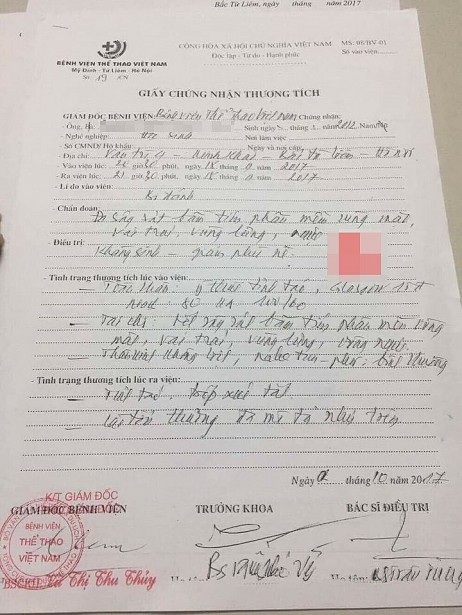 Bắc Từ Liêm, ngày tháng năm 2017
BỆNH VIỆN THỂ THAO VIỆT NAM
Mỹ Đình - Từ Liêm - Hà Nội
Số 19 /CN
CỘNG HÒA XÃ HỘI CHỦ NGHĨA VIỆT NAM
Độc lập - Tự do - Hạnh phúc
MS: 09/BV-01
Số vào viện
GIẤY CHỨNG NHẬN THƯƠNG TÍCH
GIÁM ĐỐC BỆNH VIỆN: Bệnh viện Thể Thao Việt Nam Chứng nhận:
- Ông, Bà: Sinh ngày tháng năm 2012
- Nghề nghiệp: Học sinh Nơi làm việc
- Số CMND/ Hộ khẩu: Ngày và nơi cấp
- Địa chỉ: Minh Khai - Bắc Từ Liêm - Hà Nội
- Vào viện lúc: giờ phút, ngày tháng năm 2017
- Ra viện lúc: 21 giờ 30 phút, ngày tháng năm 2017
- Lí do vào viện:
Bị đánh
- Chẩn đoán:
Đa sây sát bầm tím phần mềm vùng mặt,
vai trái, vùng lưng,
- Điều trị:
Kháng sinh - giảm phù nề
- Tình trạng thương tích lúc vào viện:
- Toàn thân: ý thức tỉnh táo, Glasgow 15đ
80 HA 100/60
- Tại chỗ: vết sây sát bầm tím phần mềm vùng
mặt, vai trái, vùng lưng, vùng ngực.
- Thần kinh không liệt, bình thường
- Tình trạng thương tích lúc ra viện:
- Tỉnh táo, tiếp xúc tốt
- Các tổn thương đã mô tả như trên
Ngày tháng 10 năm 2017
K/T GIÁM ĐỐC
GIÁM ĐỐC BỆNH VIỆN
TRƯỞNG KHOA
BÁC SĨ ĐIỀU TRỊ
BỆNH VIỆN
THỂ THAO
VIỆT NAM
BSCKII. Thị Thu Thủy
Họ tên: Bs
Họ tên: